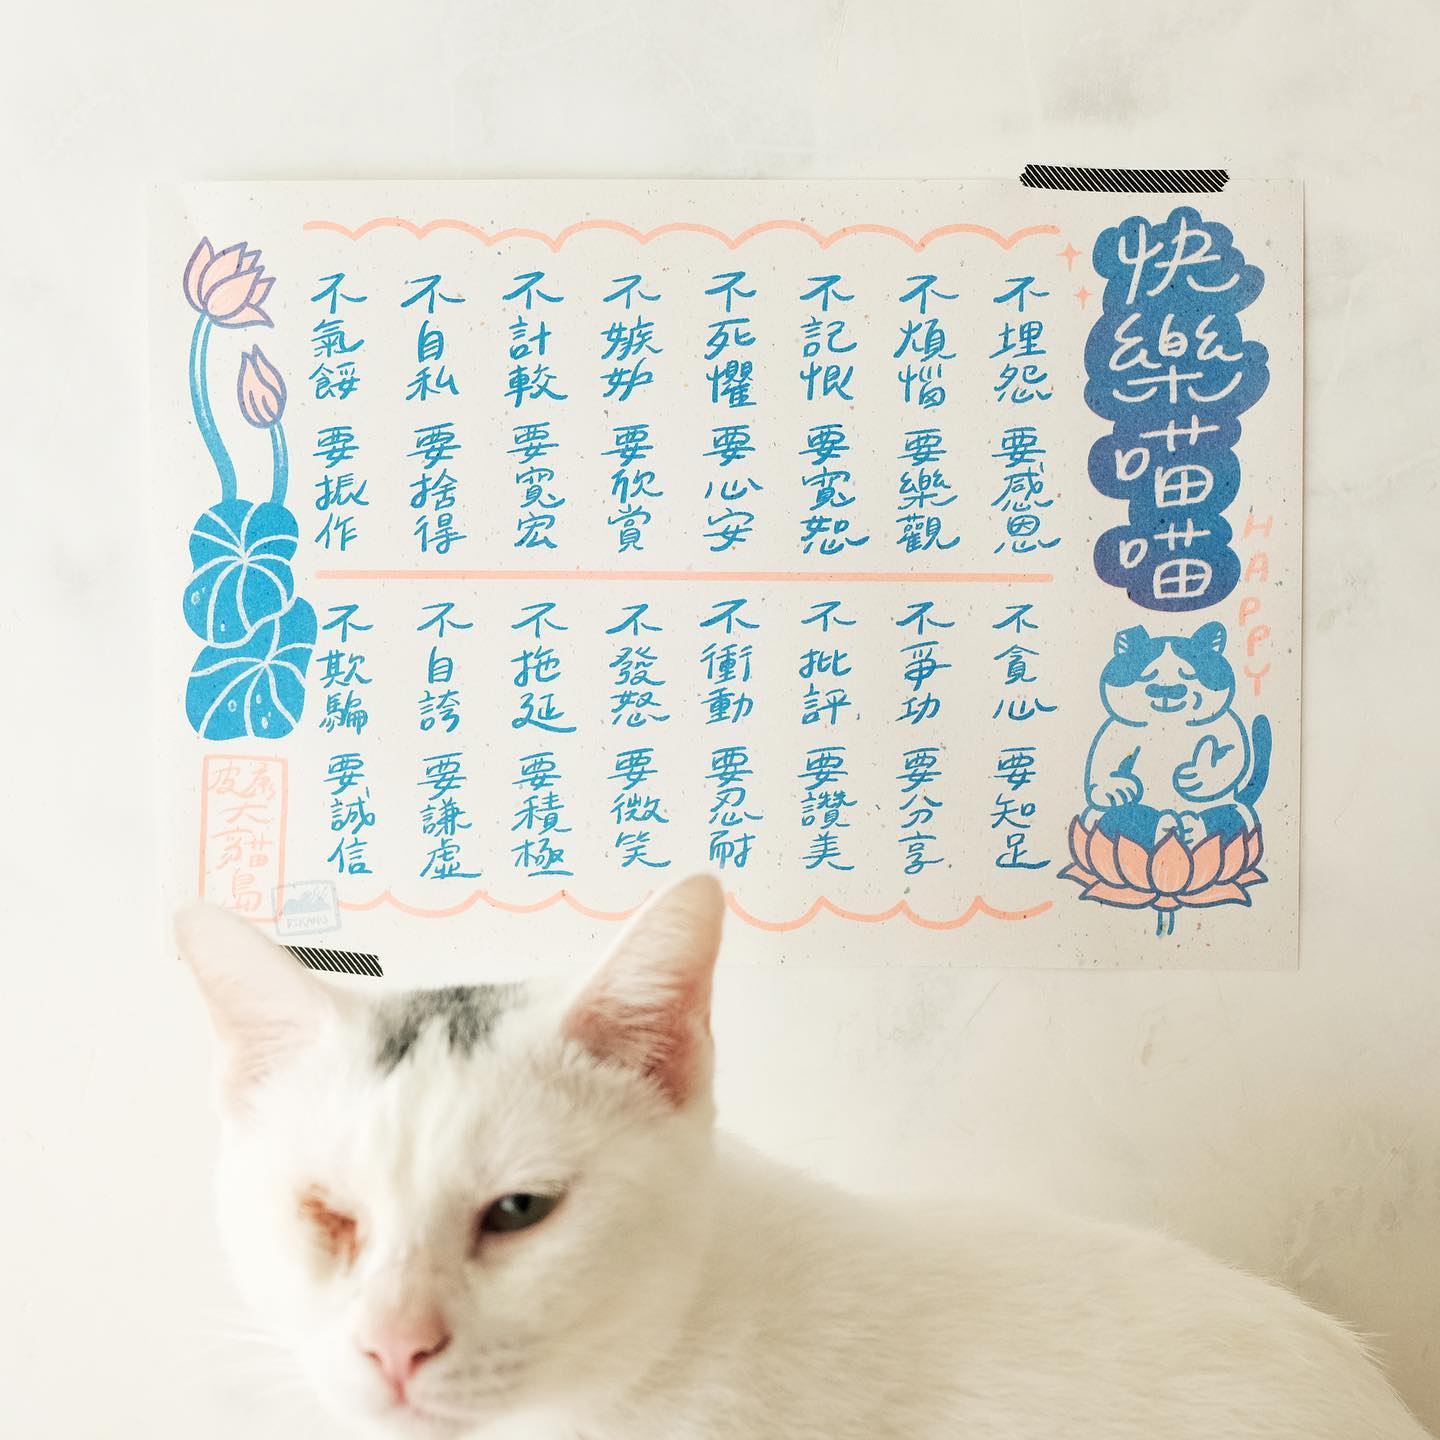 快樂喵喵
HAPPY
不埋怨 要感恩
不煩惱 要樂觀
不記恨 要寬恕
不死懼 要心安
不嫉妒 要欣賞
不計較 要寬宏
不自私 要捨得
不氣餒 要振作
不貪心 要知足
不爭功 要分享
不批評 要讚美
不衝動 要忍耐
不發怒 要微笑
不拖延 要積極
不自誇 要謙虛
不欺騙 要誠信
大貓島